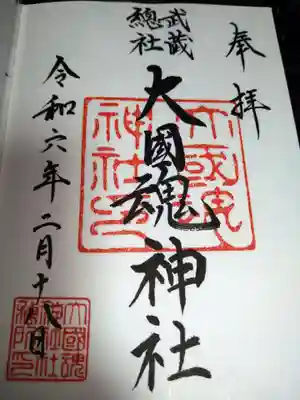 奉拝
武蔵
總社
大國魂神社
大國魂
神社印
令和六年二月十八日
大國魂
神社